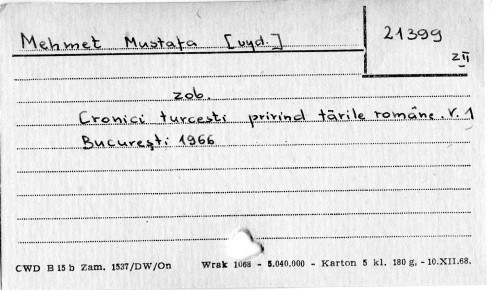 Mehmet Mustafa [wyd.]
21399
ZII
zob.
Cronici turcesti privind tările române. V. 1
Bucureşti 1966
CWD B 15 b Zam. 1537/DW/On Wrak 1068 - 5.040.000 - Karton 5 kl. 180 g. - 10.XII.68.